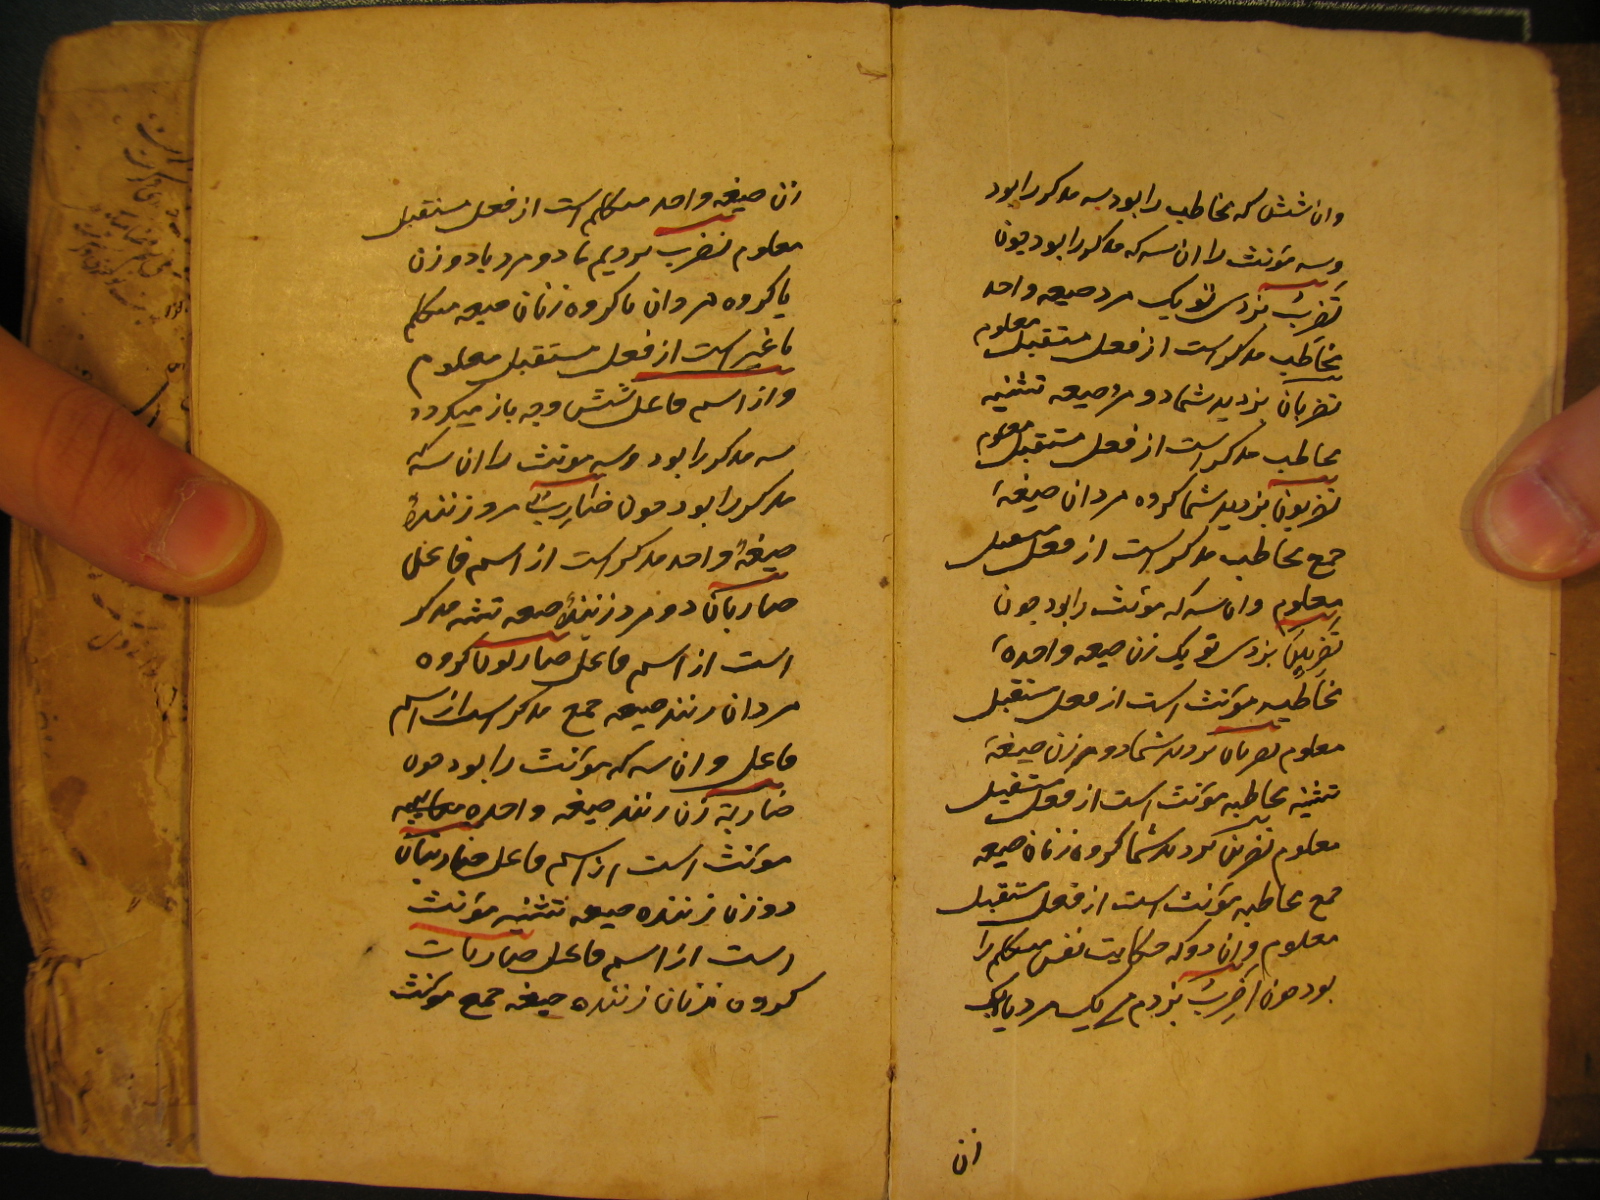 وان شش که مخاطب را بود سه مذکر را بود
وسه مؤنث را ان سه که مذکر را بود چون
تَضْرِبُ بزدی تو یک مرد صیغه واحد
مخاطب مذکر است از فعل مستقبل معلوم
تضربان بزدید شما دو مرد صیغه تثنیه
مخاطب مذکر است از فعل مستقبل معلوم
تضربون بزدید شما کروه مردان صیغهٔ
جمع مخاطب مذکر است از فعل مستقبل
معلوم وان سه که مؤنث را بود چون
تضربین بزدی تو یک زن صیغه واحدهٔ
مخاطبه مؤنث است از فعل مستقبل
معلوم تضربان بزدید شما دو زن صیغهٔ
تثنیه مخاطبه مؤنث است از فعل مستقبل
معلوم تضربن بزدید شما کروه زنان صیغه
جمع مخاطبه مؤنث است از فعل مستقبل
معلوم وان دو که حکایت نفس متکلم را
بود چون اَضرِبُ بزدم من یک مرد یا یک
زن
زن صیغه واحد متکلم است از فعل مستقبل
معلوم نضرب بزدیم ما دو مرد یا دو زن
یا کروه مردان یا کروه زنان صیغه متکلم
با غیر است از فعل مستقبل معلوم
و از اسم فاعل شش وجه باز میکردد
سه مذکر را بود وسه مؤنث را ان سه که
مذکر را بود چون ضَارِبٌ مرد زننده
صیغهٔ واحد مذکر است از اسم فاعل
ضاربان دو مرد زننده صیغه تثنیه مذکر
است از اسم فاعل ضاربون کروه
مردان زننده صیغه جمع مذکر است از اسم
فاعل وان سه که مؤنث را بود چون
ضاربة زن زننده صیغه واحده
مؤنث است از اسم فاعل ضاربتان
دو زن زننده صیغه تثنیه مؤنث
است از اسم فاعل ضاربات
کروه زنان زننده صیغه جمع مؤنث